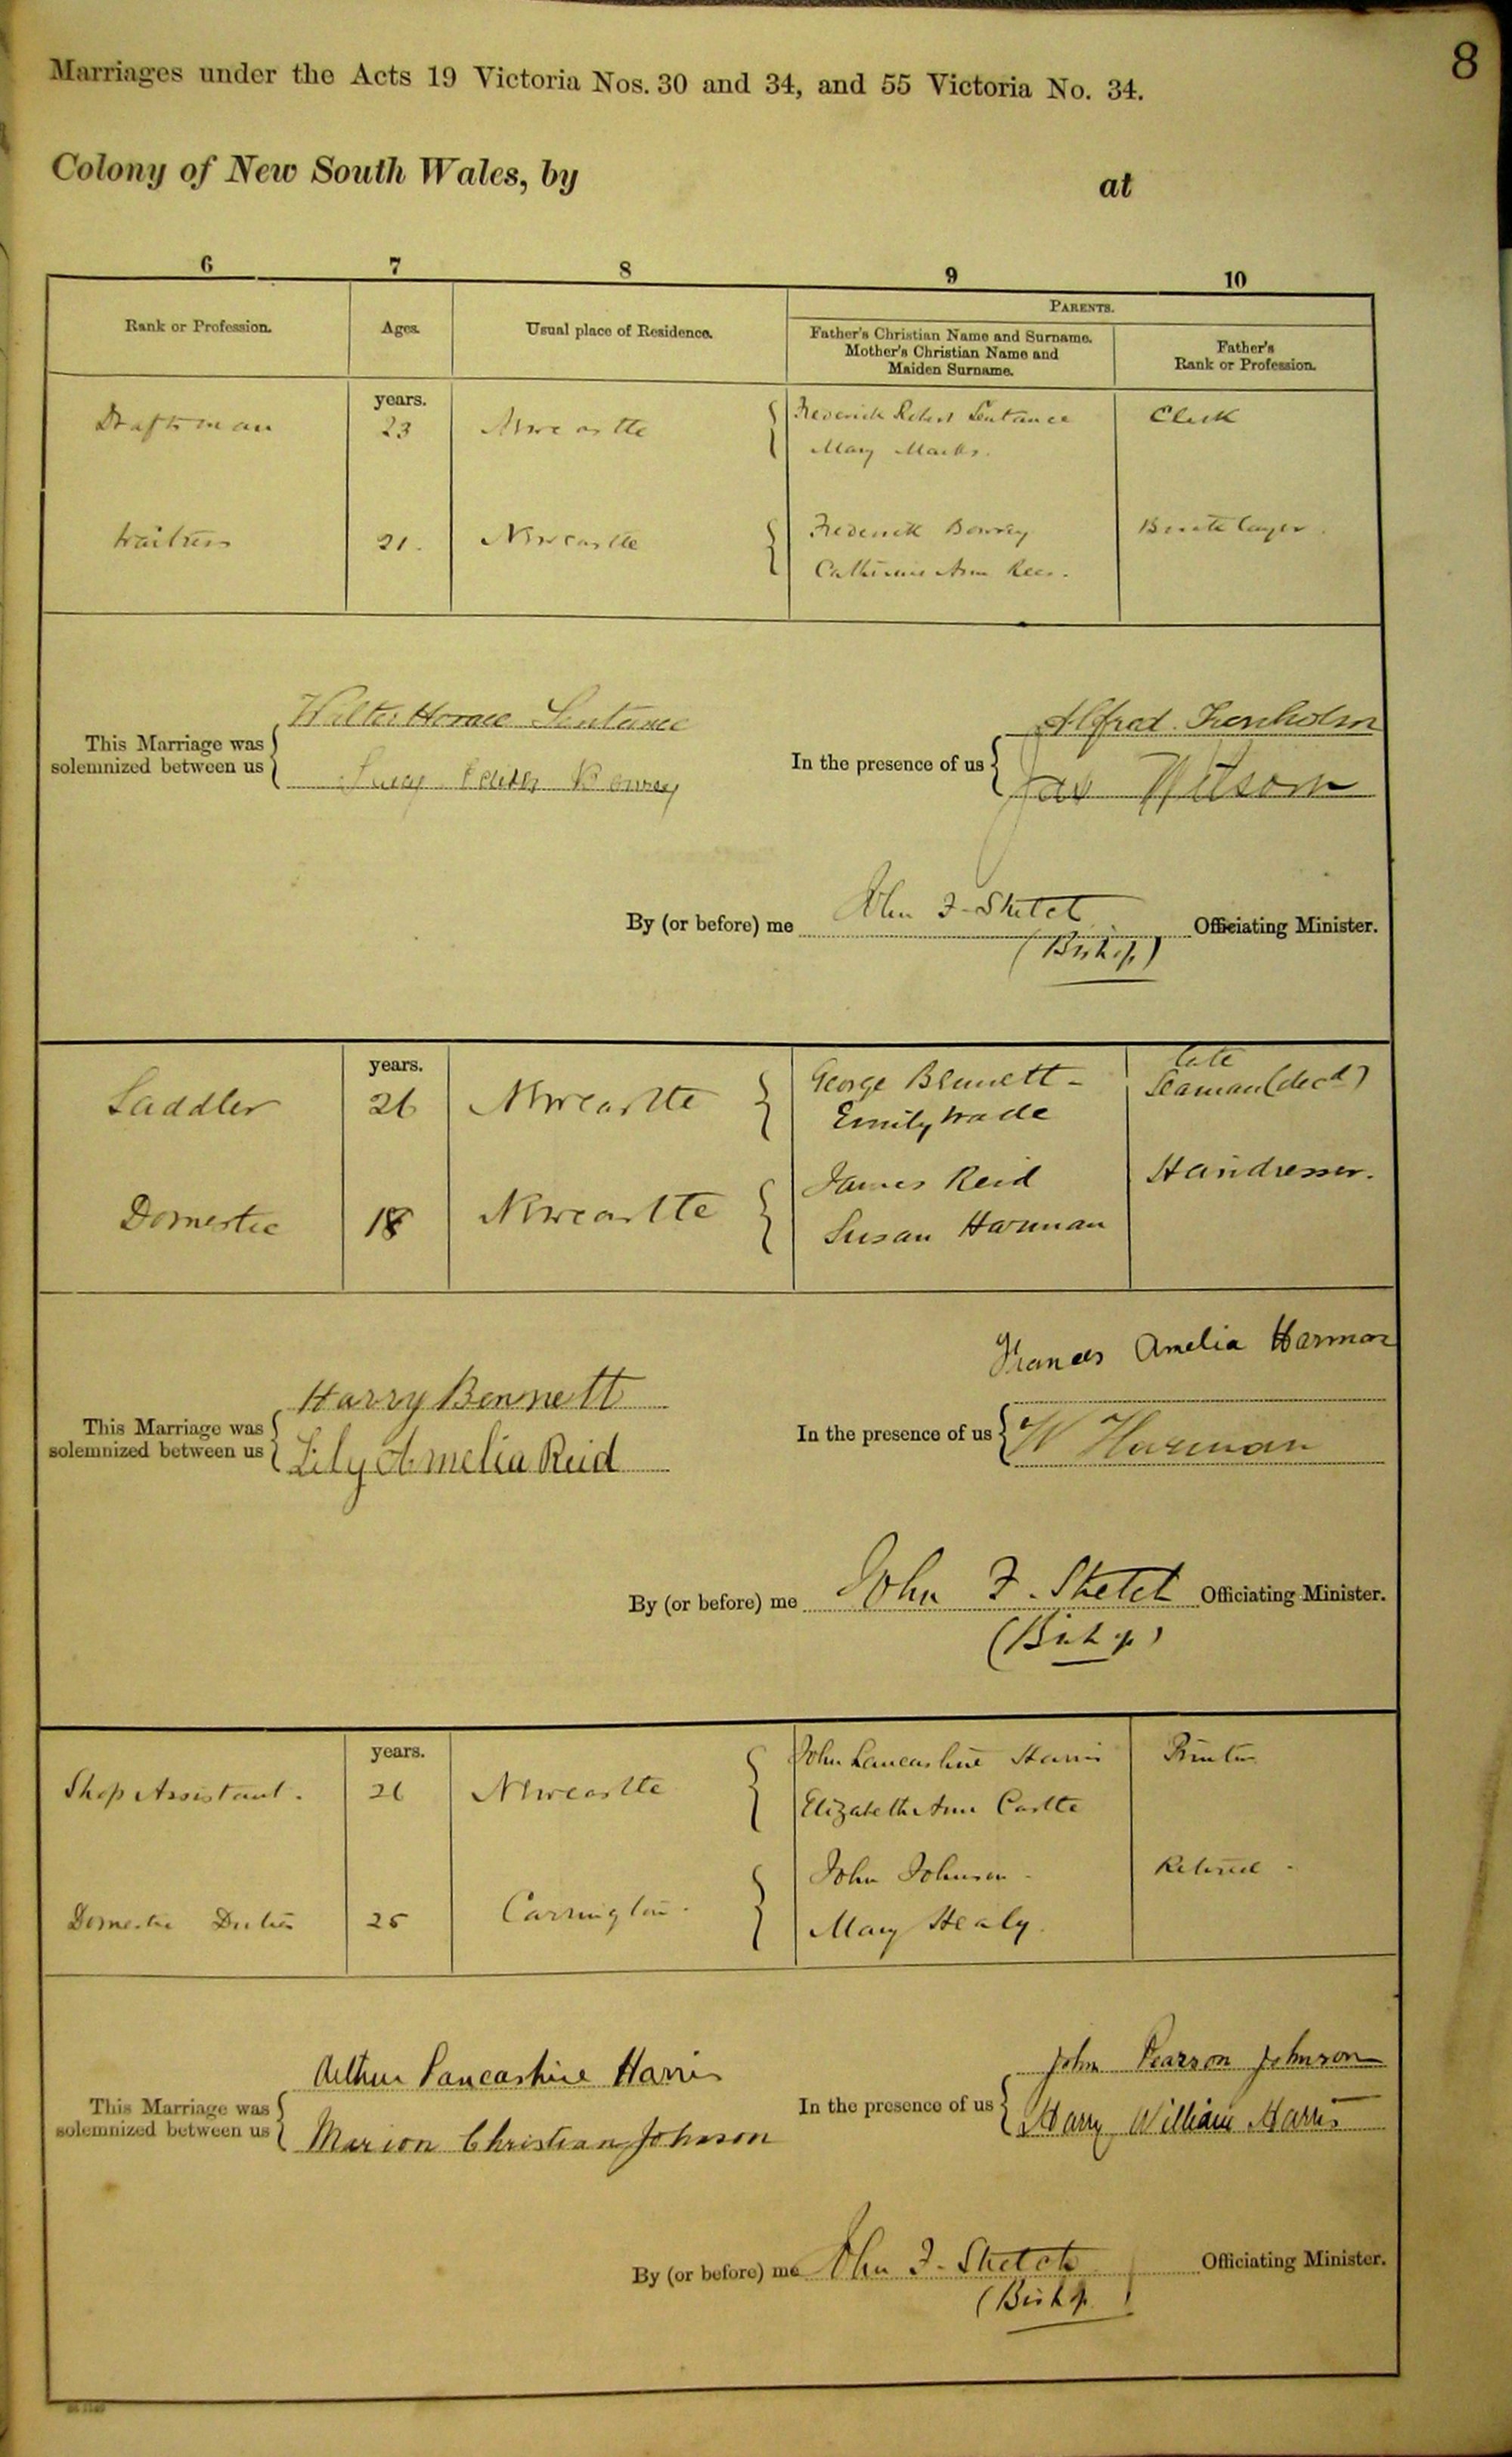 8
Marriages under the Acts 19 Victoria Nos. 30 and 34, and 55 Victoria No. 34.
Colony of New South Wales, by at
6 7 8 9 10
PARENTS.
Rank or Profession. Ages. Usual place of Residence. Father's Christian Name and Surname. Mother's Christian Name and Maiden Surname. Father's Rank or Profession.
years.
Draftsman 23 Newcastle { Frederick Robert Sentance Clerk
Mary Marks.
Waitress 21. Newcastle { Frederick Bowrey
Catherine Ann Rees.
Walter Horace Sentance Alfred Trenholm
This Marriage was solemnized between us { In the presence of us {
Lucy Edith Bowrey Jas Wilson
By (or before) me John F. Sketch Officiating Minister.
(Bishop)
years. late
Saddler 26 Newcastle { George Bennett - Seaman (decd)
Emily Wade
Domestic 18 Newcastle { James Reid Hairdresser.
Susan Harman
Frances Amelia Harman
Harry Bennett
This Marriage was solemnized between us { In the presence of us {
Lily Amelia Reid W Harman
By (or before) me John F. Sketch Officiating Minister.
(Bishop)
years.
Shop Assistant. 26 Newcastle { John Lancashire Harris Printer
Elizabeth Ann Castle
Domestic Duties 25 Carrington. { John Johnson - Retired -
Mary Healy.
Arthur Lancashire Harris John Pearson Johnson
This Marriage was solemnized between us { In the presence of us {
Marion Christian Johnson Harry William Harris
By (or before) me John F. Sketch Officiating Minister.
(Bishop)